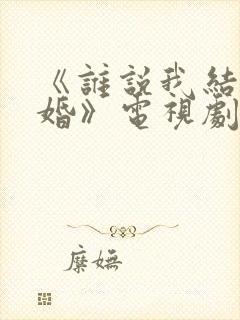 《誰説我結
婚》電視劇
糜嫵